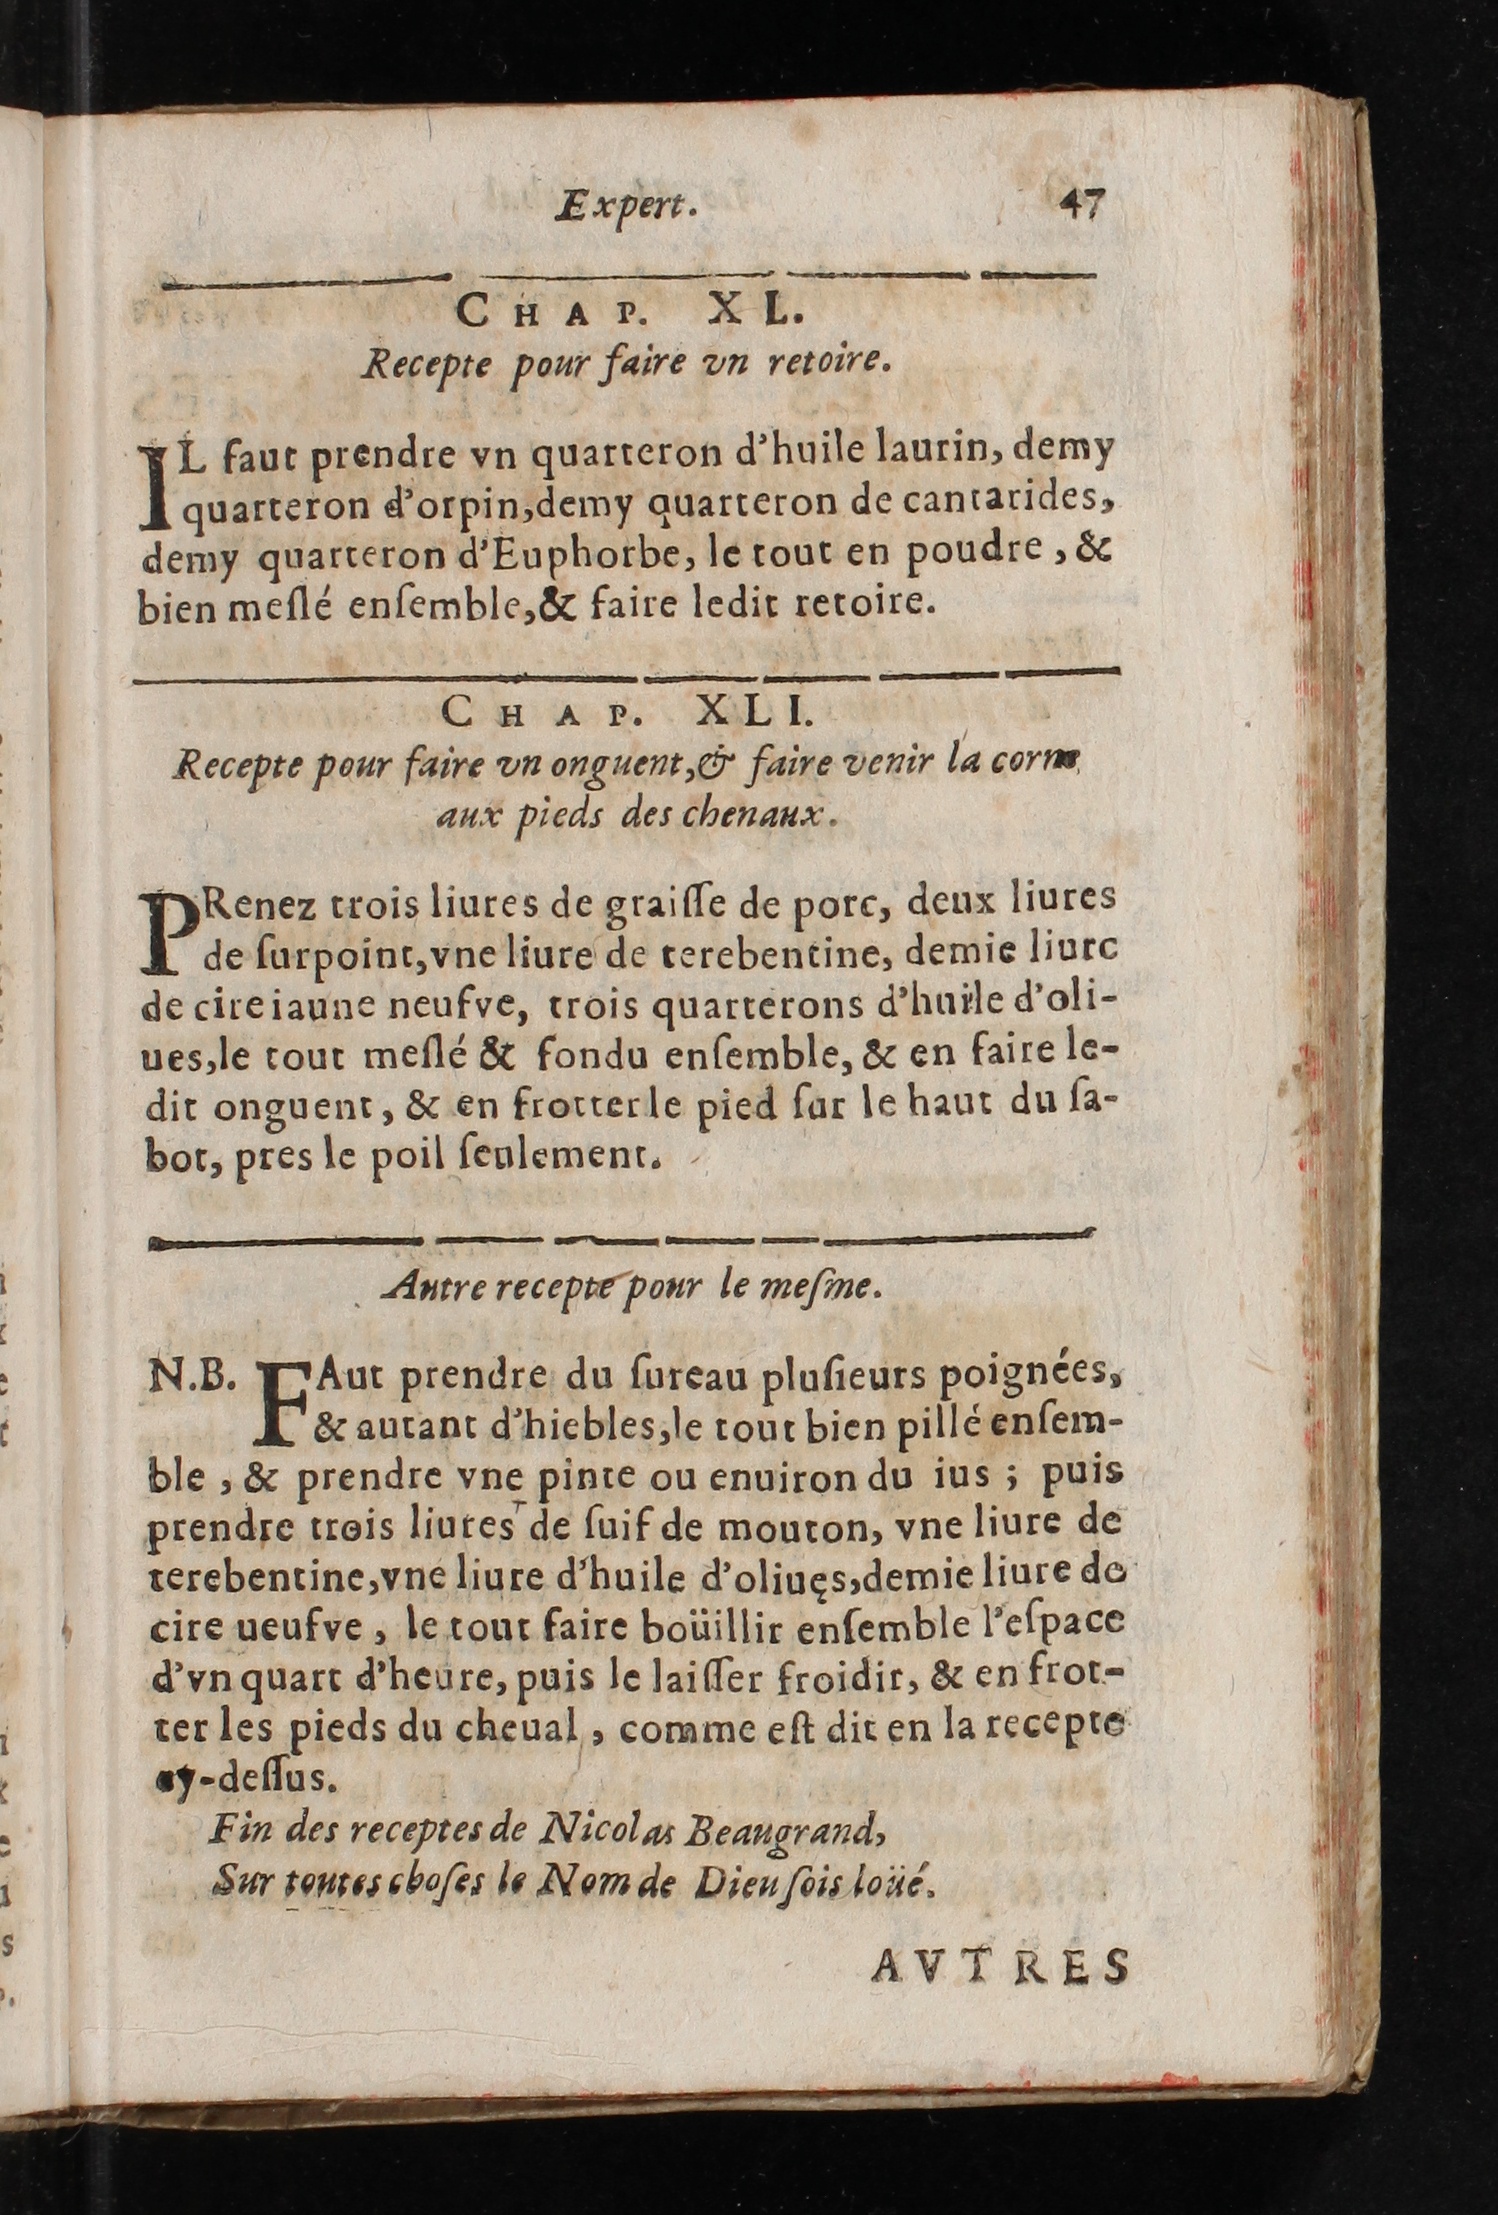 Expert. 47
CHAP. XL.
Recepte pour faire vn retoire.
IL faut prendre vn quarteron d'huile laurin, demy
quarteron d'orpin, demy quarteron de cantarides,
demy quarteron d'Euphorbe, le tout en poudre, &
bien meſlé enſemble, & faire ledit retoire.
CHAP. XLI.
Recepte pour faire vn onguent, & faire venir la corne
aux pieds des chenaux.
PRenez trois liures de graiſſe de porc, deux liures
de ſurpoint, vne liure de terebentine, demie liure
de cire iaune neufve, trois quarterons d'huile d'oli-
ues, le tout meſlé & fondu enſemble, & en faire le-
dit onguent, & en frotter le pied ſur le haut du ſa-
bot, pres le poil ſeulement.
Autre recepte pour le meſme.
N.B. FAut prendre du ſureau pluſieurs poignées,
& autant d'hiebles, le tout bien pillé enſem-
ble, & prendre vne pinte ou enuiron du ius ; puis
prendre trois liures de ſuif de mouton, vne liure de
terebentine, vne liure d'huile d'oliuęs, demie liure de
cire ueufve, le tout faire boüillir enſemble l'eſpace
d'vn quart d'heure, puis le laiſſer froidir, & en frot-
ter les pieds du cheual, comme eſt dit en la recepte
cy-deſſus.
Fin des receptes de Nicolas Beaugrand,
Sur toutes choſes le Nom de Dieu ſois loüé.
AVTRES